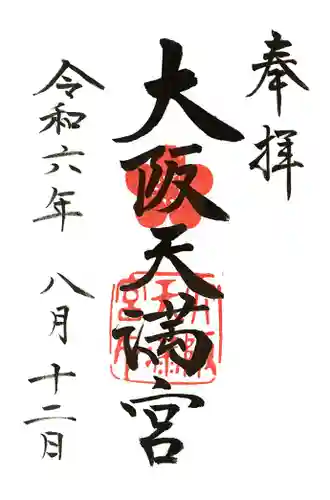 奉拝
大阪天満宮
令和六年 八月 十二日